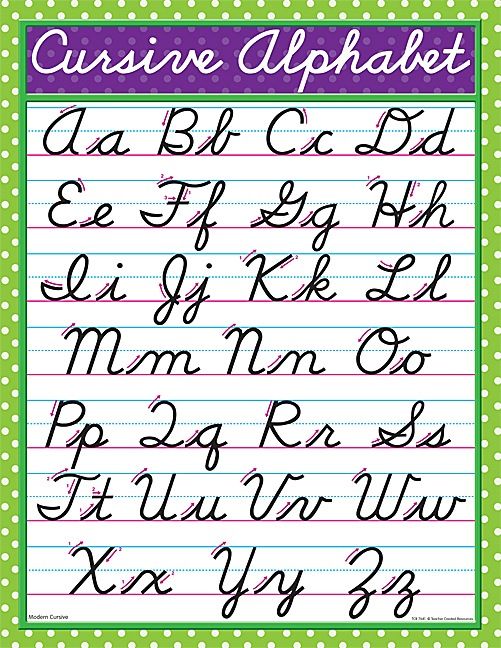 Cursive Alphabet
Aa Bb Cc Dd
Ee Ff Gg Hh
Ii Jj Kk Ll
Mm Nn Oo
Pp Qq Rr Ss
Tt Uu Vv Ww
Xx Yy Zz
Modern Cursive
© Teacher Created Resources